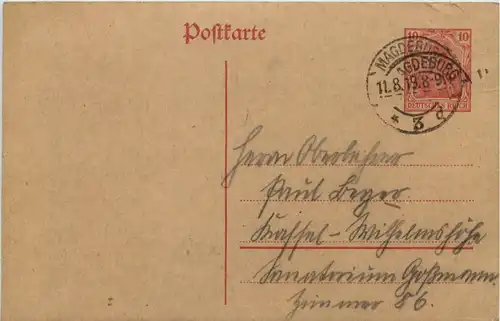 Postkarte
10 10
DEUTSCHES REICH
MAGDEBURG
11.8.19.8-9
* 3 d
Herrn Oberlehrer
Paul Beyer.
Kassel-Wilhelmshöhe
Sanatorium Goßmann.
Zimmer 86.